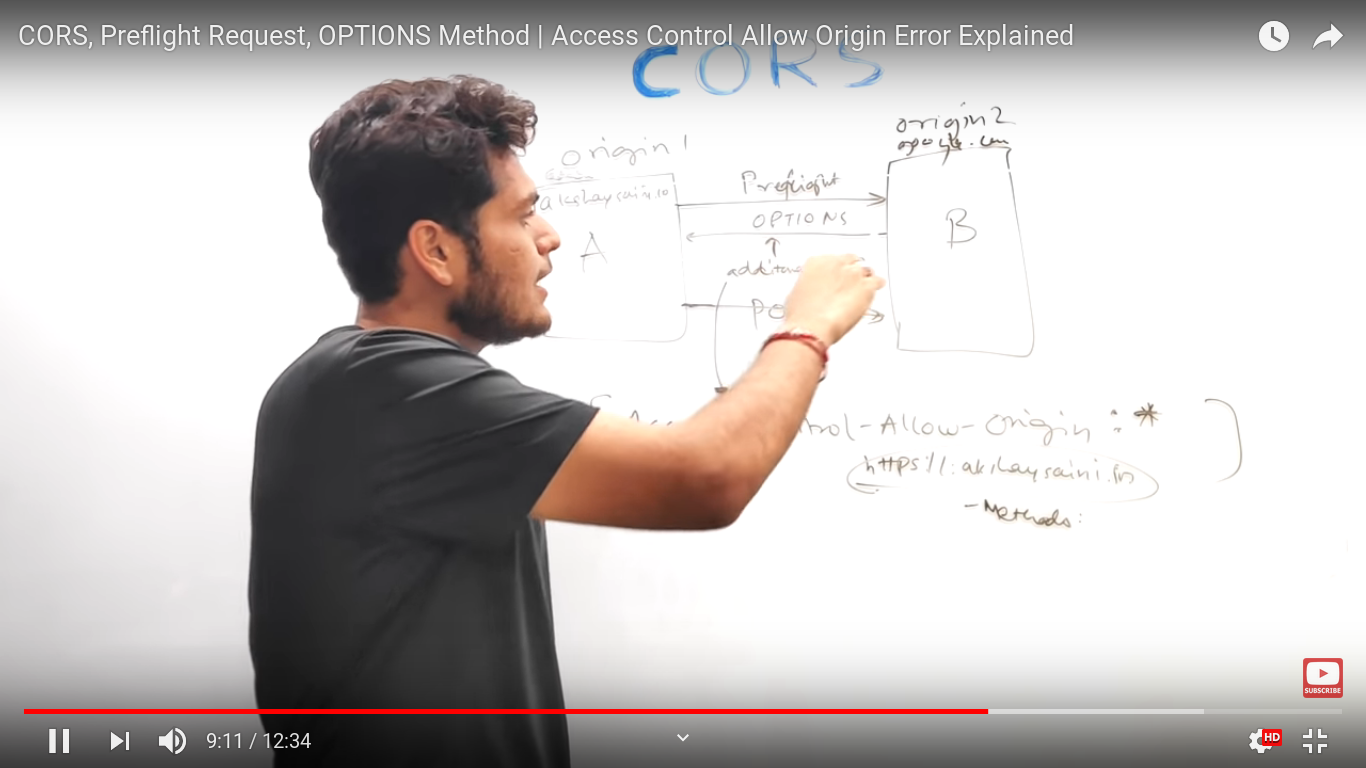 CORS, Preflight Request, OPTIONS Method | Access Control Allow Origin Error Explained
CORS
origin 1
origin 2
google.com
akshaysaini.io
Preflight
A
OPTIONS
B
PO
trol-Allow-Origin : *
https//:akshaysaini.in
- Methods:
SUBSCRIBE
9:11 / 12:34
HD